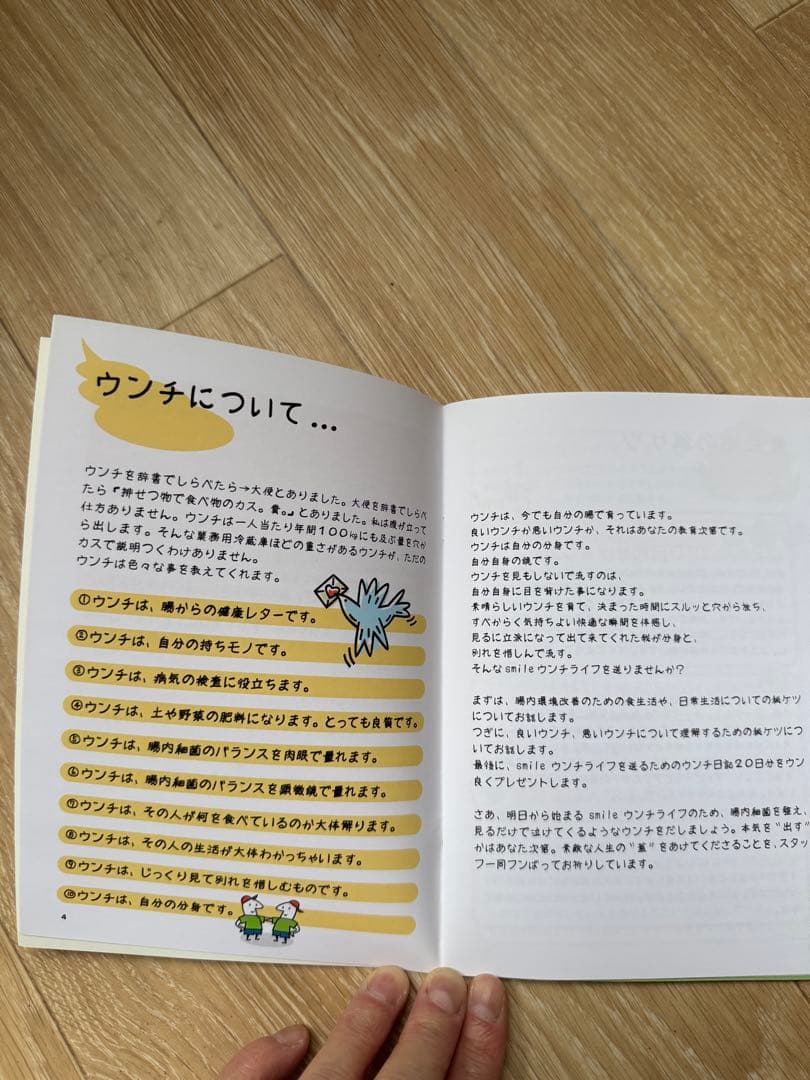 ウンチについて...
ウンチを辞書でしらべたら→大便とありました。大便を辞書でしらべ
たら『排せつ物で食べ物のカス。糞。』とありました。私は腹が立って
仕方ありません。ウンチは一人当たり年間100kgにも及ぶ量を穴か
ら出します。そんな業務用冷蔵庫ほどの重さがあるウンチが、ただの
カスで説明つくわけありません。
ウンチは色々な事を教えてくれます。
①ウンチは、腸からの健康レターです。
②ウンチは、自分の持ちモノです。
③ウンチは、病気の検査に役立ちます。
④ウンチは、土や野菜の肥料になります。とっても良質です。
⑤ウンチは、腸内細菌のバランスを肉眼で量れます。
⑥ウンチは、腸内細菌のバランスを顕微鏡で量れます。
⑦ウンチは、その人が何を食べているのか大体解ります。
⑧ウンチは、その人の生活が大体わかっちゃいます。
⑨ウンチは、じっくり見て別れを惜しむものです。
⑩ウンチは、自分の分身です。
4
ウンチは、今でも自分の腸で育っています。
良いウンチか悪いウンチか、それはあなたの教育次第です。
ウンチは自分の分身です。
自分自身の鏡です。
ウンチを見もしないで流すのは、
自分自身に目を背けた事になります。
素晴らしいウンチを育て、決まった時間にスルッと穴から放ち、
すべからく気持ちよい快適な瞬間を体感し、
見るに立派になって出て来てくれた我が分身と、
別れを惜しんで流す。
そんなsmileウンチライフを送りませんか？
まずは、腸内環境改善のための食生活や、日常生活についての秘ケツ
についてお話します。
つぎに、良いウンチ、悪いウンチについて理解するための秘ケツにつ
いてお話します。
最後に、smileウンチライフを送るためのウンチ日記20日分をウン
良くプレゼントします。
さあ、明日から始まるsmileウンチライフのため、腸内細菌を整え、
見るだけで泣けてくるようなウンチをだしましょう。本気を"出す"
かはあなた次第。素敵な人生の"蓋"をあけてくださることを、スタッ
フ一同フンばってお祈りしています。